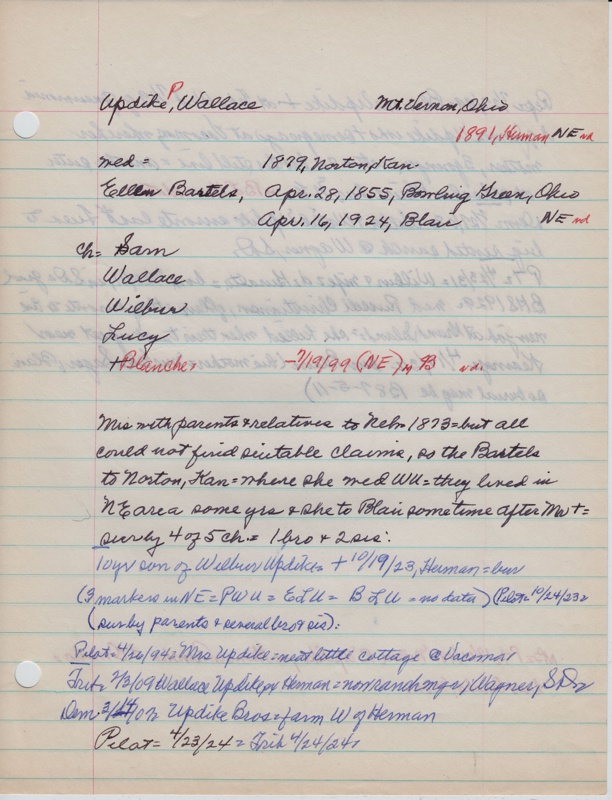 Updike, P Wallace Mt. Vernon, Ohio
1891, Herman NE nd
med = 1879, Norton, Kan.
Ellen Bartels, Apr. 28, 1855, Bowling Green, Ohio
Apr. 16, 1924, Blair NE nd
ch = Sam
Wallace
Wilbur
Lucy
+ Blanche, -7/19/99 (NE) B nd.
Mrs with parents & relatives to Nebr 1873 = but all
could not find suitable claims, so the Bartels
to Norton, Kan = where she med WU = they lived in
NE area some yrs & she to Blair sometime after Mr + =
surv by 4 of 5 ch. = 1 bro + 2 sis:
10 yr son of Wilbur Updike = + 10/19/23, Herman = bur
(3 markers in NE = PWU = ELU = BLU = no data) (Pilot = 10/24/23 =
(surv by parents & several bro & sis):
Pilot = 4/26/94 = Mrs Updike = neat little cottage @ Vacoma/
Trib = 2/3/09 Wallace Updike Herman = now ranch Wagner, S.D.
Dem. 3/14/02 Updike Bros = farm W of Herman
Pilot = 4/23/24 = Trib 4/24/24